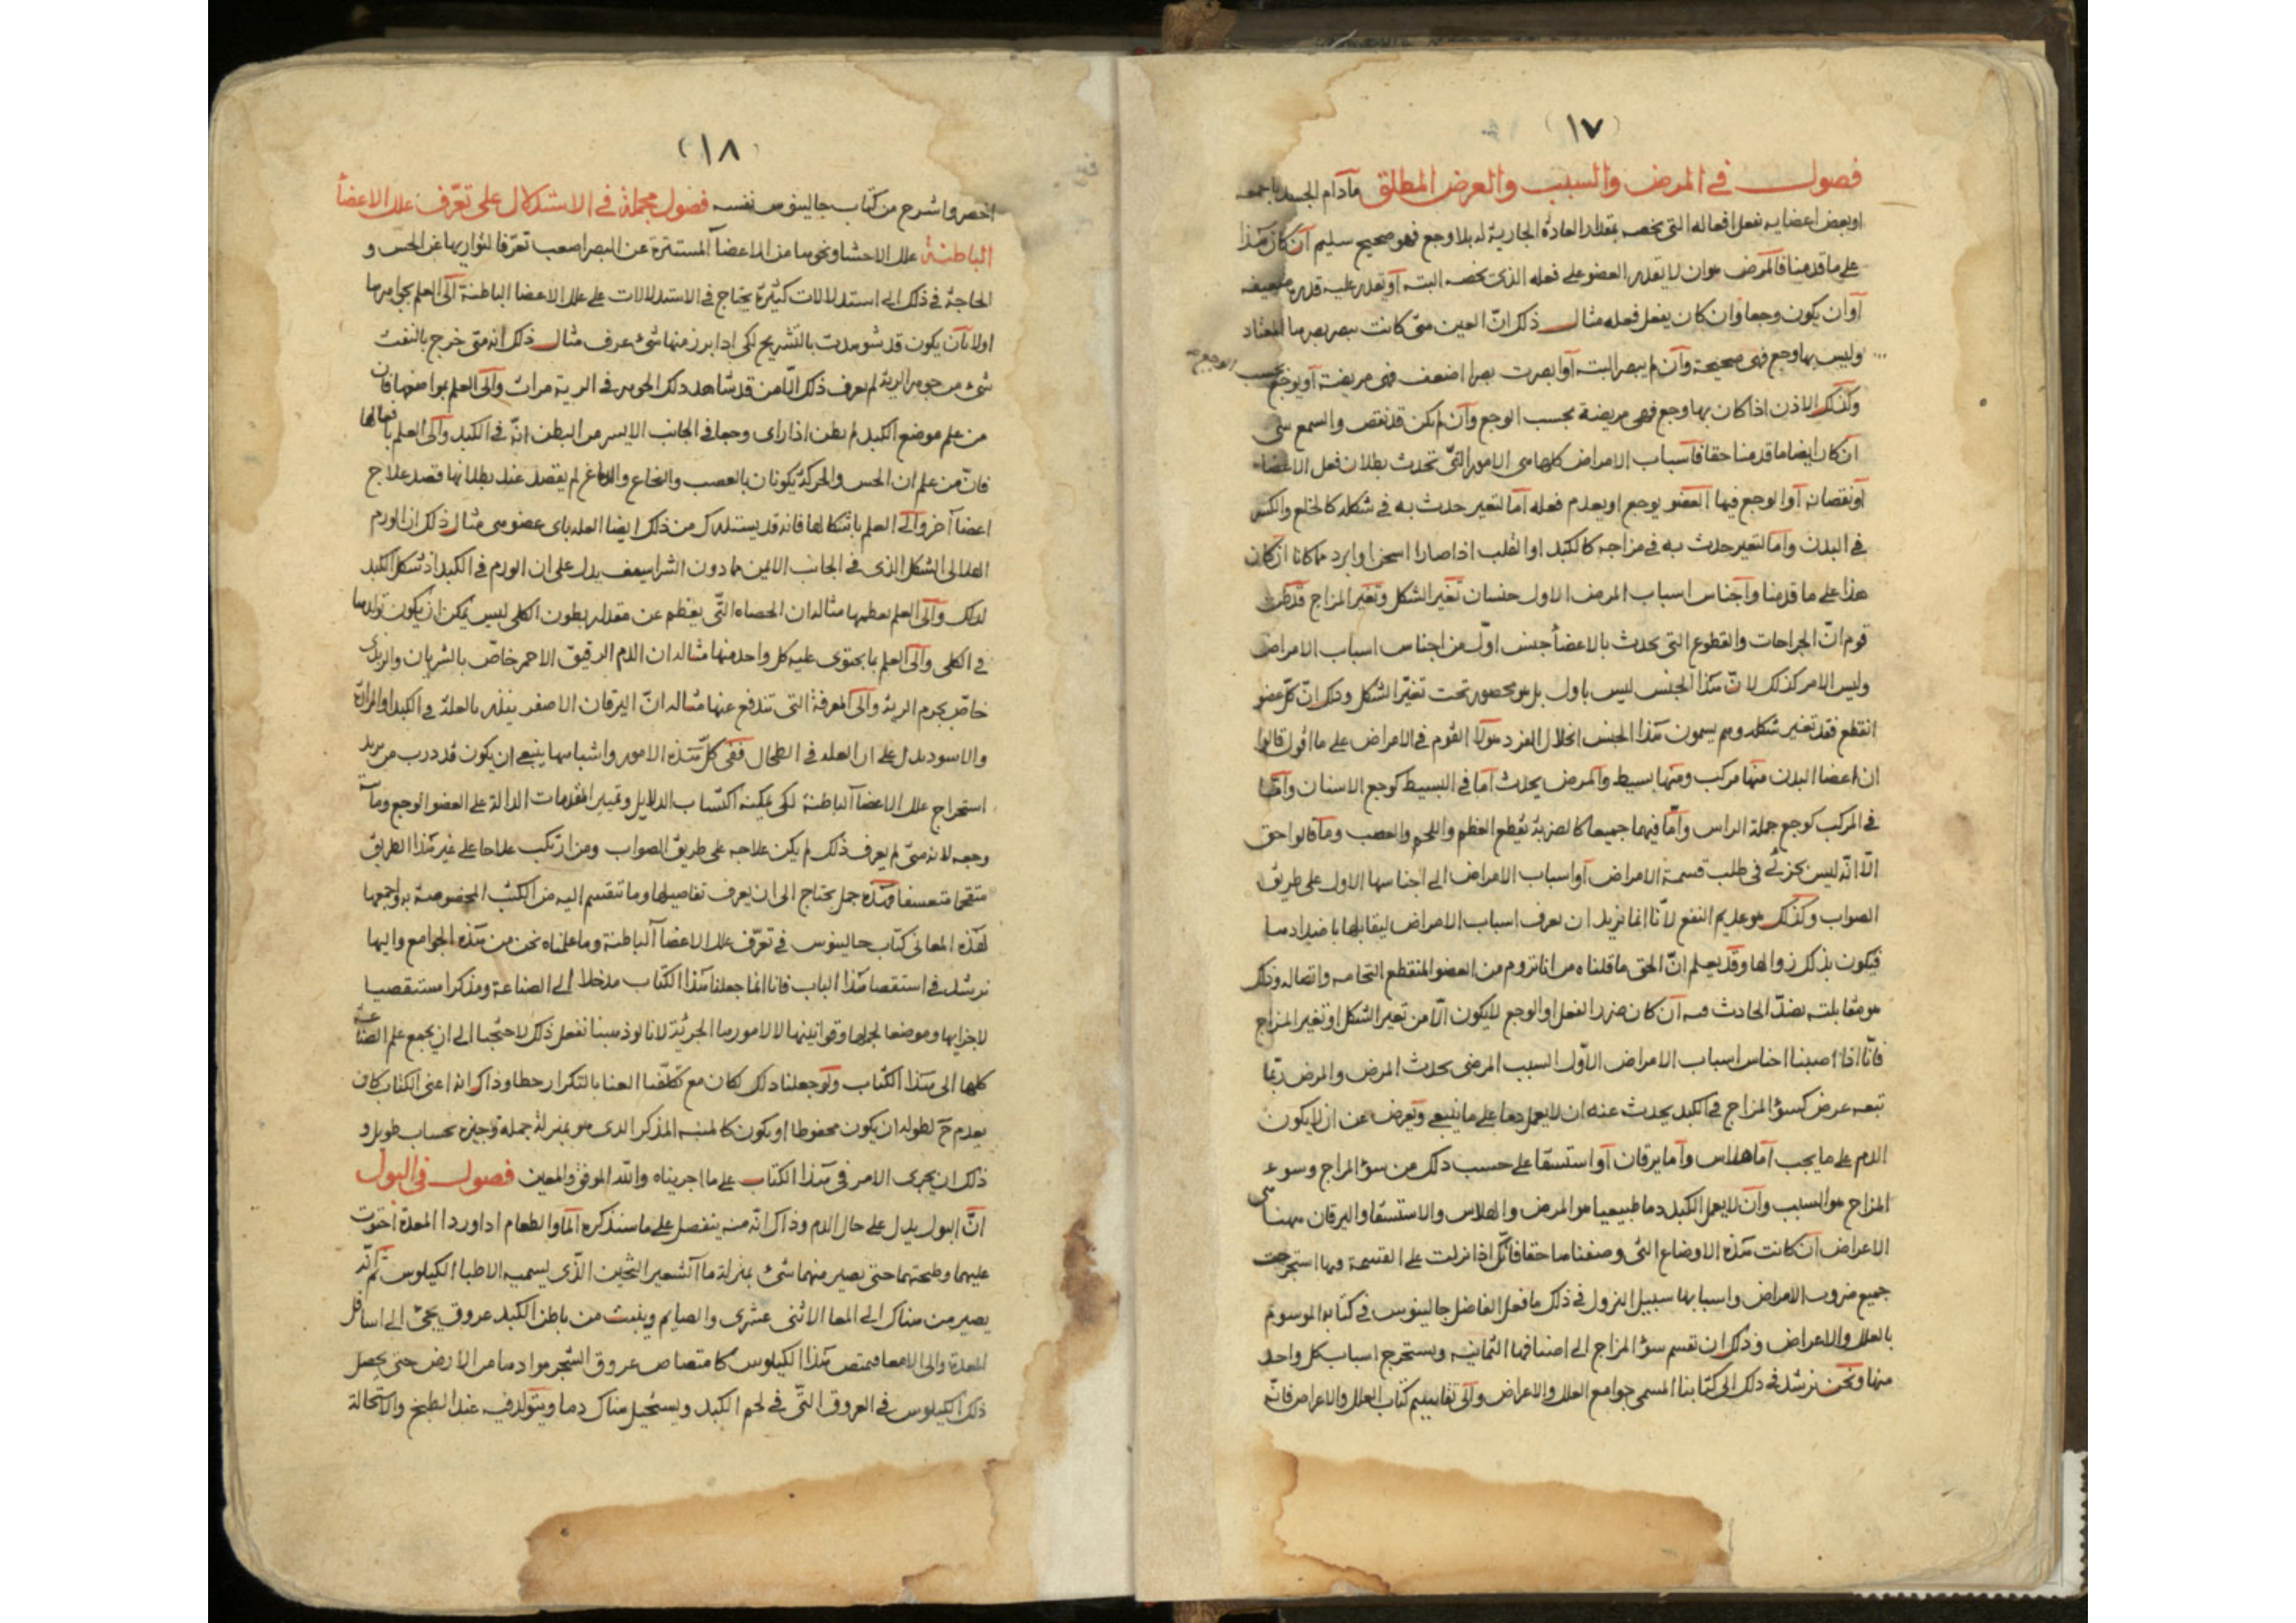 (١٧)
فصول في المرض والسبب والعرض المطلق مادام الجسد باجمعه
اوبعض اعضايه يفعل افعاله التى تخصه بمقدار العادة الجارية له بلا وجع فهو صحيح سليم ان كان هذا
على ما قدمنا فالمرض هو ان لا يقدر العضو على فعله الذى يخصه البتة او يقدر عليه قدرة ضعيفة
او ان يكون وجعا وان كان يفعل فعله مثال ذلك ان العين متى كانت تبصر بصرها المعتاد
وليس بها وجع فهى صحيحة وان لم يبصر البتة او ابصرت بصرا اضعف فهى مريضة او بوجع بحسب الوجع
وكذلك الاذن اذا كان بها وجع فهى مريضة بحسب الوجع وان لم يكن قد نقص والسمع شى
ان كان ايضا ما قدمنا حقا فاسباب الامراض كلها هى الامور التى تحدث بطلان فعل الاعضا
او نقصانه او الوجع فيها العضو يوجع او يعدم فعله اما لتغير حدث به في شكله كالخلع والكسر
في البدن واما لتغير حدث به في مزاجه كالكبد او القلب اذا صارا اسخن او ابرد مما كانا ان كان
هذا على ما قدمنا واجناس اسباب المرض الاول جنسان تغير الشكل وتغير المزاج قد ظن
قوم ان الجراحات والقطوع التى تحدث بالاعضأ جنس اول من اجناس اسباب الامراض
وليس الامر كذلك لان هذا الجنس ليس باول بل هو محصور تحت تغير الشكل وذلك ان كل عضو
انقطع فقد تغير شكله وهم يسمون هذا الجنس انحلال الفرد هولا القوم في الامراض على ما اقول قالوا
ان اعضا البدن منها مركب ومنها بسيط والمرض يحدث اما في البسيط كوجع الاسنان واما
في المركب كوجع جملة الراس واما فيهما جميعا كالضربة تقطع العظم واللحم والعصب وما قالوا حق
الا انه ليس يجزئ في طلب قسمة الامراض او اسباب الامراض الى اجناسها الاول على طريق
الصواب وكذلك هو عديم النفع لانا انما نريد ان نعرف اسباب الامراض ليقابلها باضدادها
فيكون بذلك زوالها وقد يعلم ان الحق ما قلناه من انا نروم من العضو المنقطع التحامه واتصاله وذلك
هو مقابلته بضد الحادث فيه ان كان ضرر الفعل او الوجع لا يكون الا من تغير الشكل او تغير المزاج
فانا اذا اصبنا اجناس اسباب الامراض الاول السبب المرضى يحدث المرض والمرض ربما
تبعه عرض كسؤ المزاج في الكبد يحدث عنه ان لا يعمل دما على ما ينبغى ويعرض عن ان لا يكون
الدم على ما يجب اما هلاس واما يرقان او استسقا على حسب ذلك من سؤ المزاج وسوء
المزاج هو السبب وان لا يعمل الكبد دما طبيعيا هو المرض والهلاس والاستسقا واليرقان ههنا هى
الاعراض ان كانت هذه الاوضاع التى وصفناها حقا فانك اذا نزلت على القسمة فيها استخرجت
جميع ضروب الامراض واسبابها سبيل النزول في ذلك ما فعل الفاضل جالينوس في كتابه الموسوم
بالعلل والاعراض وذلك ان تقسم سؤ المزاج الى اصنافها الثمانية ويستخرج اسباب كل واحد
منها ونحن نرشد في ذلك الى كتابنا المسمى جوامع العلل والاعراض والى تقاسيم كتاب العلل والاعراض فانه
(١٨)
اخصر واشرح من كتاب جالينوس نفسه فصول مجملة في الاستدلال على تعرف علل الاعضأ
الباطنة علل الاحشا ونحوها من الاعضأ المستترة عن البصر اصعب تعرفا لتواريها عن الحس و
الحاجة في ذلك الى استدلالات كثيرة يحتاج في الاستدلالات على علل الاعضا الباطنة الى العلم بجواهرها
اولا بان يكون قد شوهدت بالتشريح لكى اذا برز منها شئ عرف مثال ذلك انه متى خرج بالنفث
شئ من جوهر الرية لم يعرف ذلك الا من قد شاهد ذلك الجوهر في الرية مرات والى العلم بمواضعها فان
من علم موضع الكبد لم يظن اذا راى وجعا في الجانب الايسر من البطن انه في الكبد والى العلم بافعالها
فان من علم ان الحس والحركة يكونان بالعصب والنخاع والدماغ لم يقصد عند بطلانها قصد علاج
اعضأ اخر والى العلم باشكالها فانه قد يستدرك من ذلك ايضا العلة باى عضو هى مثال ذلك ان الورم
الهلالى الشكل الذى في الجانب الايمن مما دون الشراسيف يدل على ان الورم في الكبد اذ شكل الكبد
كذلك والى العلم بعظمها مثاله ان الحصاه التى يعظم عن مقدار بطون الكلى ليس يمكن ان يكون تولدها
في الكلى والى العلم بما يحتوى عليه كل واحد منها مثاله ان الدم الرقيق الاحمر خاص بالشريان والزبدى
خاص بجرم الرية والى المعرفة التى تندفع عنها مثاله ان اليرقان الاصفر ينذر بالعلة في الكبد او المرارة
والاسود يدل على ان العلة في الطحال ففى كل هذه الامور واشباهها ينبغى ان يكون قد درب من يريد
استخراج علل الاعضأ الباطنة لكى يمكنه اكتساب الدلايل وتمييز المقدمات الدالة على العضو الوجع وما هية
وجعه لانه متى لم يعرف ذلك لم يكن علاجه على طريق الصواب ومن ارتكب علاجا على غير هذا الطريق
متقحما متعسفا فهذه جمل يحتاج الى ان يعرف تفاصيلها وما تنقسم اليه من الكتب المخصوصة به واجمعها
لهذه المعانى كتاب جالينوس في تعرف علل الاعضأ الباطنة وما عملناه نحن من هذه الجوامع واليها
نرشد في استقصا هذا الباب فانا انما جعلنا هذا الكتاب مدخلا الى الصناعة ومذكرا مستقصيا
لاجزايها وموضعا لجملها وقوانينها لا لامورها الجزئية لانا لو ذهبنا نفعل ذلك لاحتجنا الى ان يجمع علم الصناعة
كلها الى هذا الكتاب ولو جعلنا ذلك لكان مع تكلفنا العنا بالتكرار خطا وذاك انه اعنى الكتاب كان
يعدم ح لطوله ان يكون محفوظا او يكون كالمنبه المذكر الذى هو بمنزلة جملة وجيزه بحساب طويل و
ذلك ان يجرى الامر في هذا الكتاب على ما اجريناه والله الموفق والمعين فصول في البول
ان البول يدل على حال الدم وذاك انه منه ينفصل على ما سنذكره المأ والطعام اذا وردا المعدة احتوت
عليهما وطبختهما حتى يصير منهما شئ بمنزلة مأ الشعير الثخين الذى يسميه الاطبا الكيلوس ثم انه
يصير من هناك الى المعا الاثنى عشرى والصايم وينبث من باطن الكبد عروق يجئ الى اسافل
المعدة والى الامعا فيمتص هذا الكيلوس كامتصاص عروق الشجر موادها من الارض حتى يحصل
ذلك الكيلوس في العروق التى في لحم الكبد ويستحيل هناك دما ويتولد فيه عند الطبخ والاستحالة